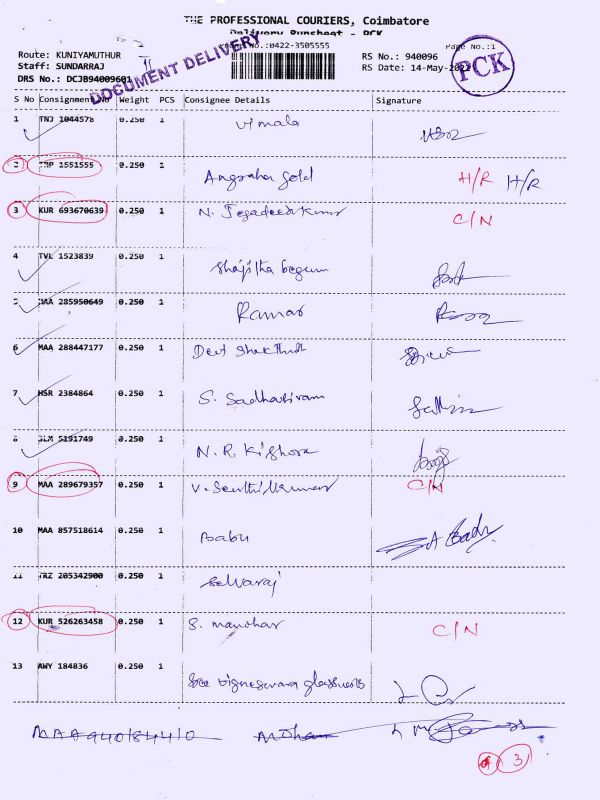 THE PROFESSIONAL COURIERS, Coimbatore
Delivery Runsheet - PCK
No.:0422-3505555
Page No.:1
Route: KUNIYAMUTHUR
Staff: SUNDARRAJ
DRS No.: DCJB94009601
DOCUMENT DELIVERY
RS No.: 940096
RS Date: 14-May-
PCK
S No Consignment No Weight PCS Consignee Details Signature
1 TNJ 1044578 0.250 1 Vimala
2 1551555 0.250 1 gold H/R H/R
3 KUR 693670639 0.250 1 N. C/N
4 TVL 1523839 0.250 1 Shajitha begum
5 MAA 285950649 0.250 1 Ramar
6 MAA 288447177 0.250 1
7 HSR 2384864 0.250 1 S. Sadhasivam
8 SLM 5191749 0.250 1 N.R. Kishore
9 MAA 289679357 0.250 1 V. Senthilkumar C/N
10 MAA 857518614 0.250 1 Babu
11 TRZ 205342900 0.250 1 Selvaraj
12 KUR 526263458 0.250 1 S. manohar C/N
13 AWY 184836 0.250 1 Sree vigneswara
MAA940184410
3